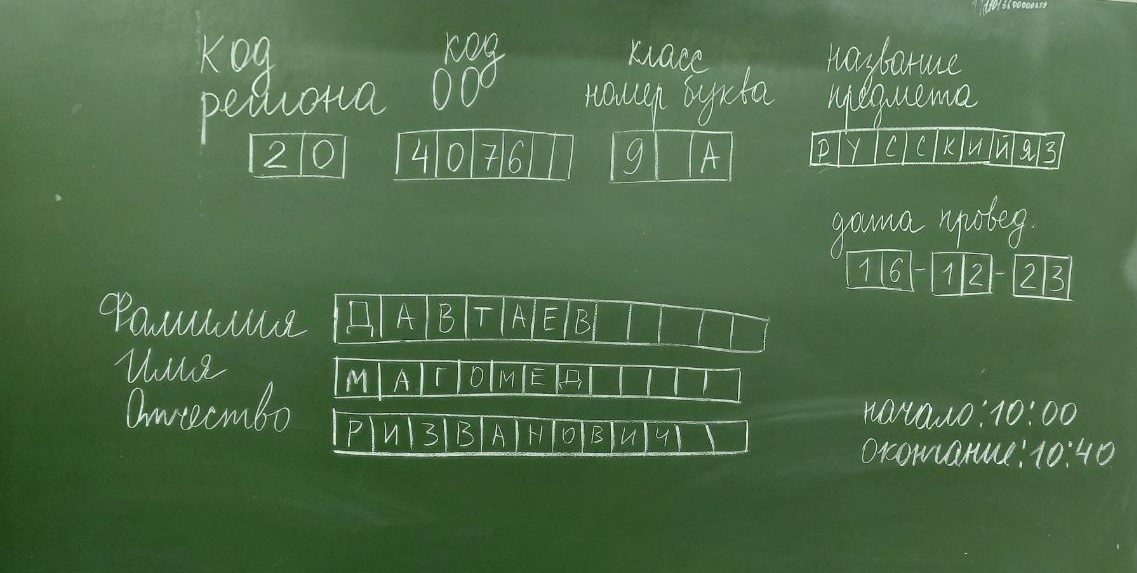 код региона
20
код ОО
4076
класс
номер буква
9 А
название предмета
РУССКИЙЯЗ
дата провед.
16-12-23
Фамилия ДАВТАЕВ
Имя МАГОМЕД
Отчество РИЗВАНОВИЧ
начало: 10:00
окончание: 10:40